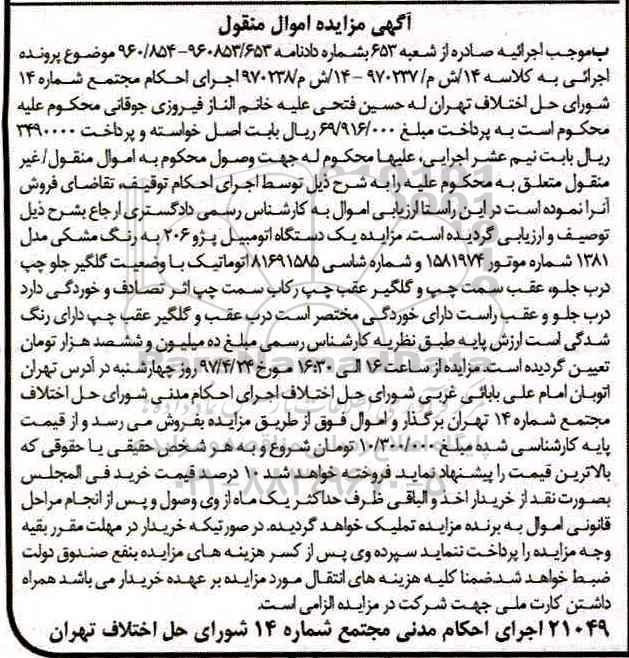 آگهی مزایده اموال منقول
بموجب اجرائیه صادره از شعبه ۶۵۳ بشماره دادنامه ۹۶۰۸۵۳/۶۵۳-۹۶۰/۸۵۴ موضوع پرونده
اجرائی به کلاسه ۱۴/ش م/۹۷۰۲۳۷ - ۱۴/ش م/۹۷۰۲۳۸ اجرای احکام مجتمع شماره ۱۴
شورای حل اختلاف تهران له حسین فتحی علیه خانم الناز فیروزی جوقانی محکوم علیه
محکوم است به پرداخت مبلغ ۶۹/۹۱۶/۰۰۰ ریال بابت اصل خواسته و پرداخت ۳۴۹۰۰۰۰
ریال بابت نیم عشر اجرایی، علیها محکوم له جهت وصول محکوم به اموال منقول/غیر
منقول متعلق به محکوم علیه را به شرح ذیل توسط اجرای احکام توقیف، تقاضای فروش
آنرا نموده است در این راستا ارزیابی اموال به کارشناس رسمی دادگستری ارجاع بشرح ذیل
توصیف و ارزیابی گردیده است. مزایده یک دستگاه اتومبیل پژو ۲۰۶ به رنگ مشکی مدل
۱۳۸۱ شماره موتور ۱۵۸۱۹۷۴ و شماره شاسی ۸۱۶۹۱۵۸۵ اتوماتیک با وضعیت گلگیر جلو چپ
درب جلو، عقب سمت چپ و گلگیر عقب چپ رکاب سمت چپ اثر تصادف و خوردگی دارد
درب جلو و عقب راست دارای خوردگی مختصر است درب عقب و گلگیر عقب چپ دارای رنگ
شدگی است ارزش پایه طبق نظریه کارشناس رسمی مبلغ ده میلیون و ششصد هزار تومان
تعیین گردیده است. مزایده از ساعت ۱۶ الی ۱۶:۳۰ مورخ ۹۷/۴/۲۴ روز چهارشنبه در آدرس تهران
اتوبان امام علی بابائی غربی شورای حل اختلاف اجرای احکام مدنی شورای حل اختلاف
مجتمع شماره ۱۴ تهران برگذار و اموال فوق از طریق مزایده بفروش می رسد و از قیمت
پایه کارشناسی شده مبلغ ۱۰/۳۰۰/۰۰۰ تومان شروع و به هر شخص حقیقی یا حقوقی که
بالاترین قیمت را پیشنهاد نماید فروخته خواهد شد. ۱۰ درصد قیمت خرید فی المجلس
بصورت نقد از خریدار اخذ و الباقی ظرف حداکثر یک ماه از وی وصول و پس از انجام مراحل
قانونی اموال به برنده مزایده تملیک خواهد گردیده. در صورتیکه خریدار در مهلت مقرر بقیه
وجه مزایده را پرداخت ننماید سپرده وی پس از کسر هزینه های مزایده بنفع صندوق دولت
ضبط خواهد شد.ضمنا کلیه هزینه های انتقال مورد مزایده بر عهده خریدار می باشد همراه
داشتن کارت ملی جهت شرکت در مزایده الزامی است.
۲۱۰۴۹ اجرای احکام مدنی مجتمع شماره ۱۴ شورای حل اختلاف تهران